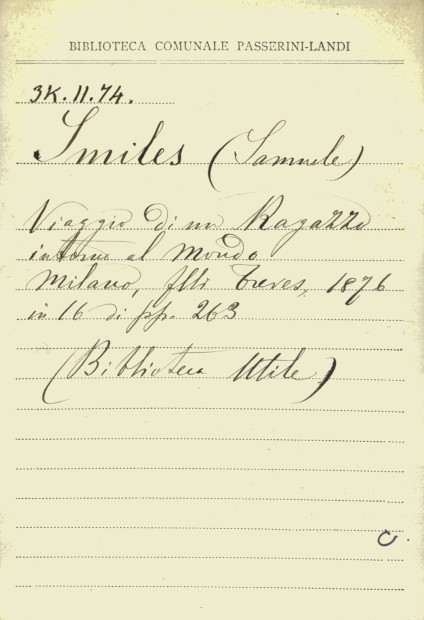 BIBLIOTECA COMUNALE PASSERINI-LANDI
3K.II.74.
Smiles (Samuele)
Viaggio di un Ragazzo
intorno al Mondo
Milano, flli Treves, 1876
in 16 di pp. 263
(Biblioteca Utile)
C.